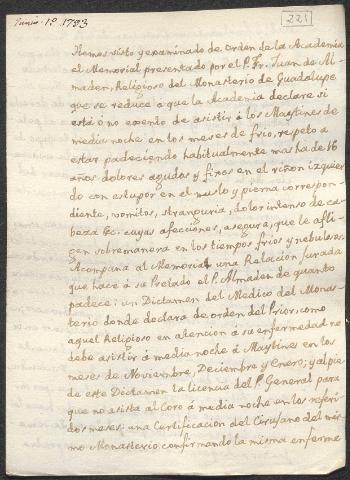 Junio 1º 1793
221
Hemos visto y examinado de orden de la Academia
el Memorial presentado por el P. Fr. Juan de Al-
maden, Religioso del Monasterio de Guadalupe
que se reduce á que la Academia declare si
está ó no exento de asistir á los Maytines de
media noche en los meses de frio, respeto a
estar padeciendo habitualmente mas ha de 16
años dolores agudos y fixos en el riñon izquier
do con estupor en el muslo y pierna correspon-
diente, vomitos, stranguria, dolor intenso de ca-
beza &c. cuyas afecciones, asegura, que le afli-
gen sobremanera en los tiempos frios y nebulosos.
Acompaña al Memorial una Relacion jurada
que hace á su Prelado el P. Almaden de quanto
padece: un Dictamen del Medico del Monas-
terio donde declara de orden del Prior, como
aquel Religioso en atencion á su enfermedad no
debe asistir á media noche á Maytines en los
meses de Noviembre, Deciembre y Enero; y al pie
de este Dictamen la licencia del P. General para
que no asista al Coro á media noche en los referi-
dos meses: una Certificacion del Cirujano del mis-
mo Monasterio confirmando la misma enferme